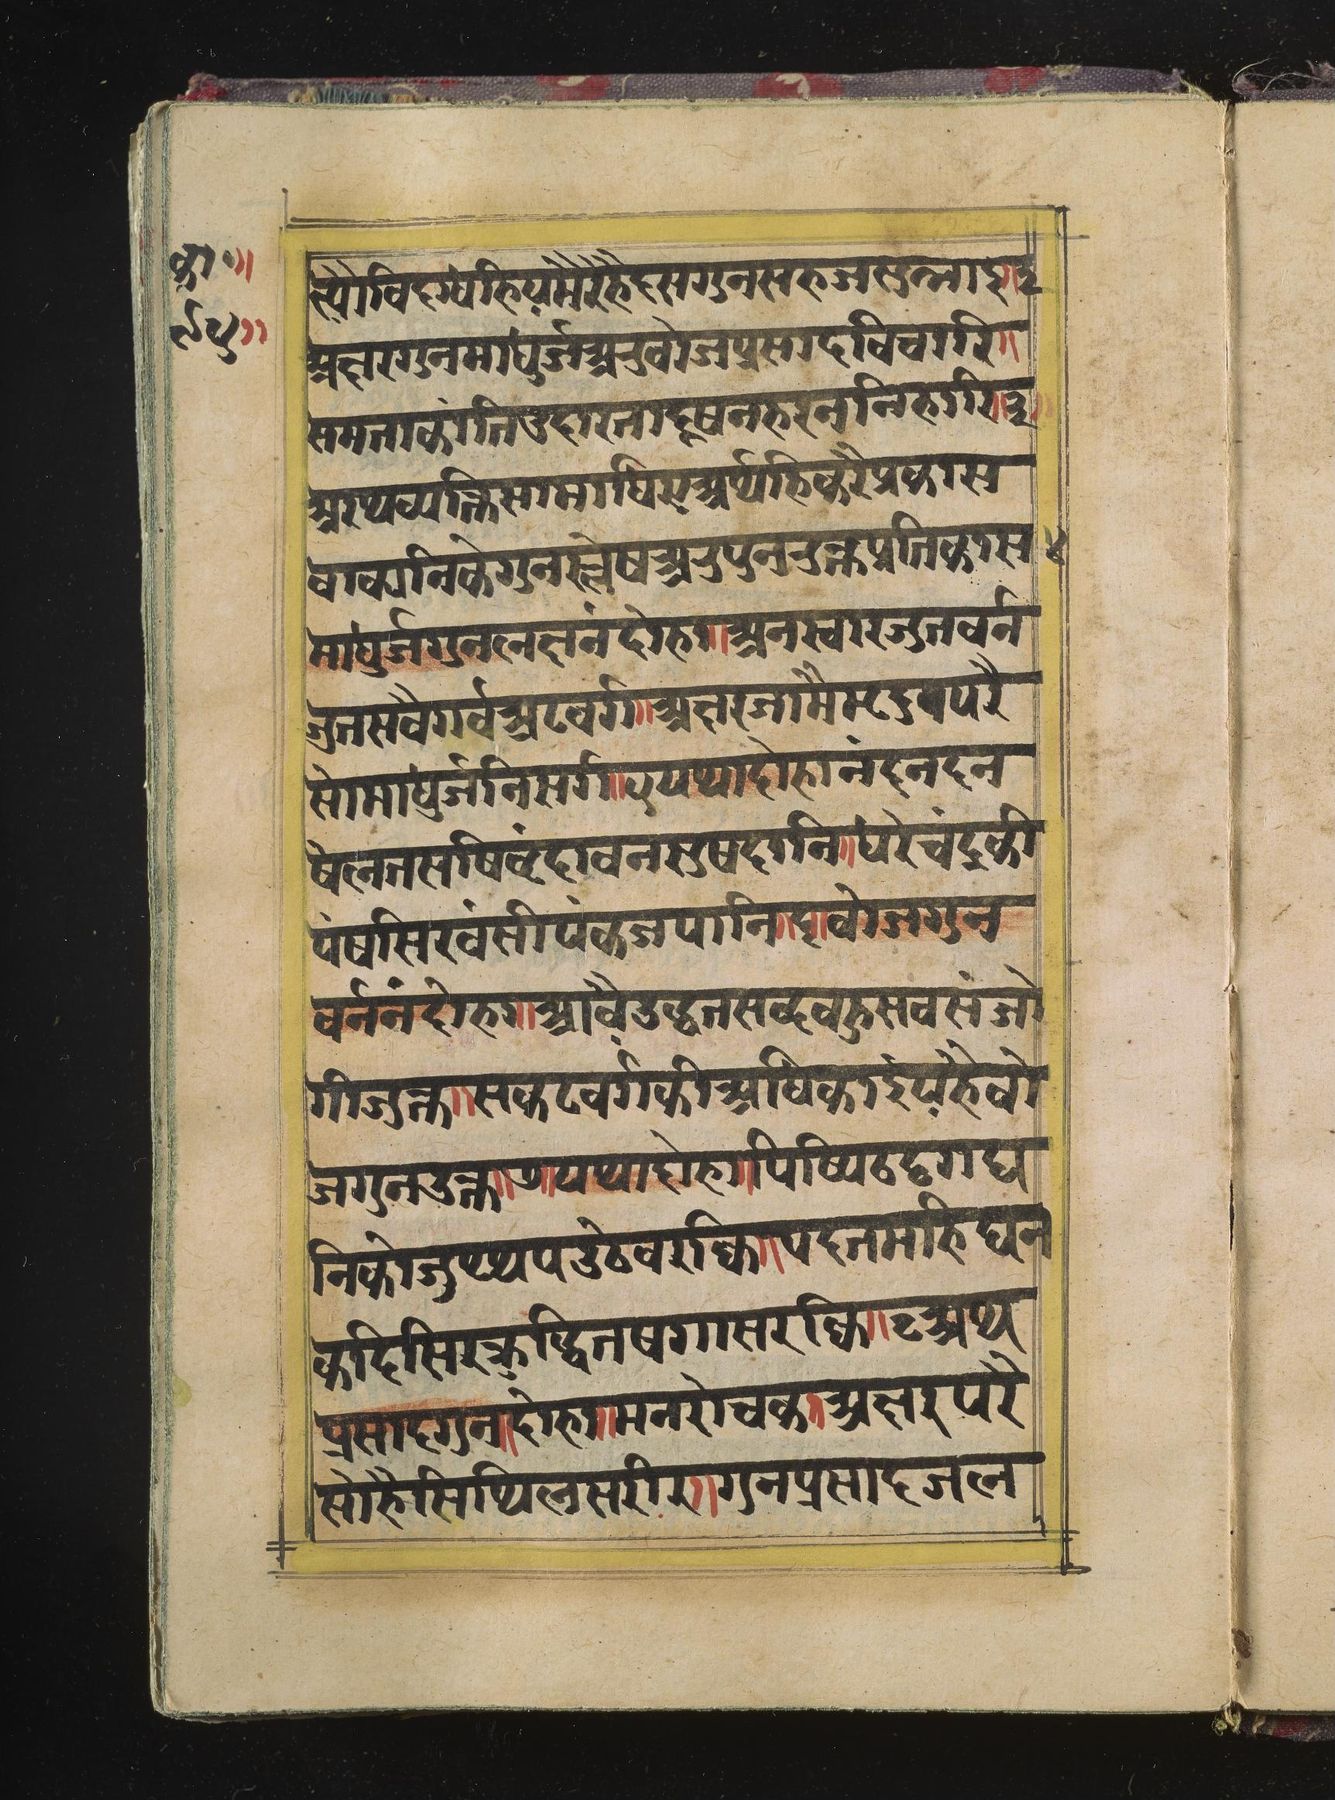 का॰॥
र्नध॥
त्यौविदग्धहियमैंरहैदसगुनसहजसुनाइ॥२
अक्षरगुनमाधुर्जअरुवोजप्रसादविचारि॥
समताकांतिउदारतादूषनहरननिहारि॥३॥
अरथव्यक्तिसमाधिएअर्थहिकरैप्रकास
वाक्यनिकेगुनस्लेषअरुपुनरुक्तप्रतिकास४
माधुर्जगुनलक्षनंदोहा॥अनस्वारजुतवर्न
जुतसवैवर्गअटवर्ग॥अक्षरजामैम्टदुवपरै
सोमाधुर्जनिसर्ग॥५यथादोहानंदनदन
षेलतसषिवृंदावनसुषदानि॥धरेचंद्रकी
पंषसिरवंसीपंकजपानि॥६॥वोजगुन
वर्ननंदोहा॥आवैउद्धतसव्दवहुसवसंजो
गीजुक्त॥सकटवर्गकीअधिकाईयहैवो
जगुनउक्त॥७॥यथादोहा॥पिष्यिठट्ठगघ
निकोजुथ्थपउठेवरक्कि॥पदतमहिघन
कदिसिरकुद्धितषगासरक्कि॥८अथ
प्रसादगुन॥दोहा॥मनरोचकअक्षरपरै
सोहैसिथिलसरीर॥गुनप्रसादजल